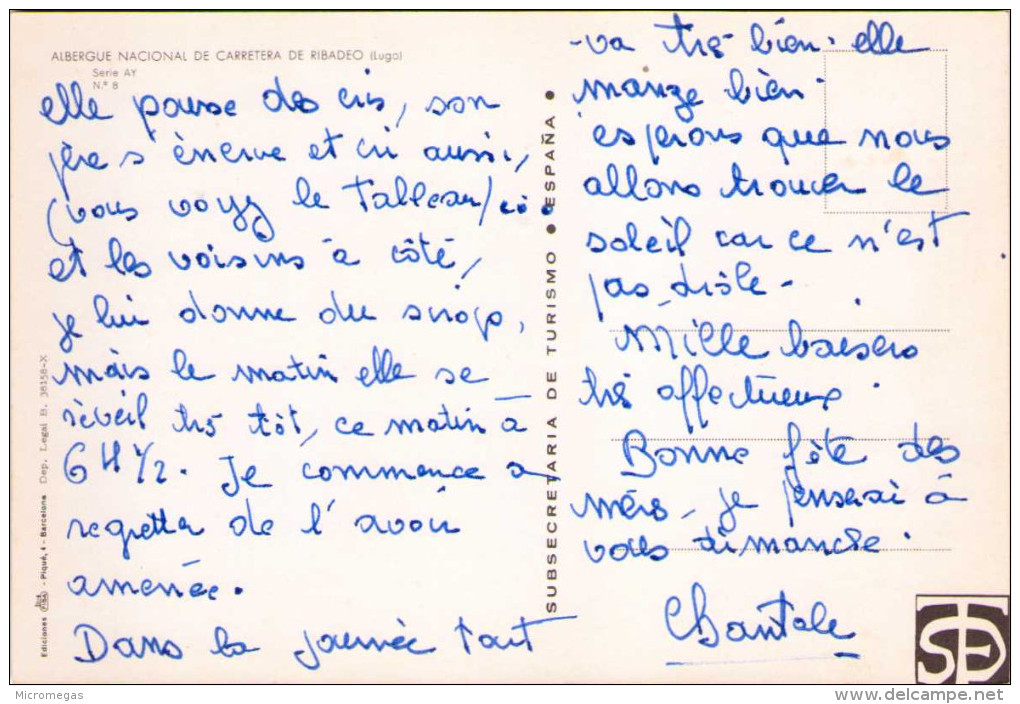 ALBERGUE NACIONAL DE CARRETERA DE RIBADEO (Lugo)
Serie AY
N.º 8
elle pousse des cris, son
père s'énerve et cri aussi,
(vous voyez le tableau) ...
et les voisins à côté,
je lui donne du sirop,
mais le matin elle se
réveil très tôt, ce matin à
6 H 1/2. Je commence a
regretter de l'avoir
amenée.
Dans la journée tout
va très bien. elle
mange bien.
esperons que nous
allons trouver le
soleil car ce n'est
pas drôle -
Mille baisers
très affectueux.
Bonne fête des
mères, je penserai à
vous dimanche.
Chantale
SUBSECRETARIA DE TURISMO ● ESPAÑA ●
Ediciones FISA - Piqué, 4 - Barcelona Dep. Legal B. 38158-X
STE
Micromegas
www.delcampe.net